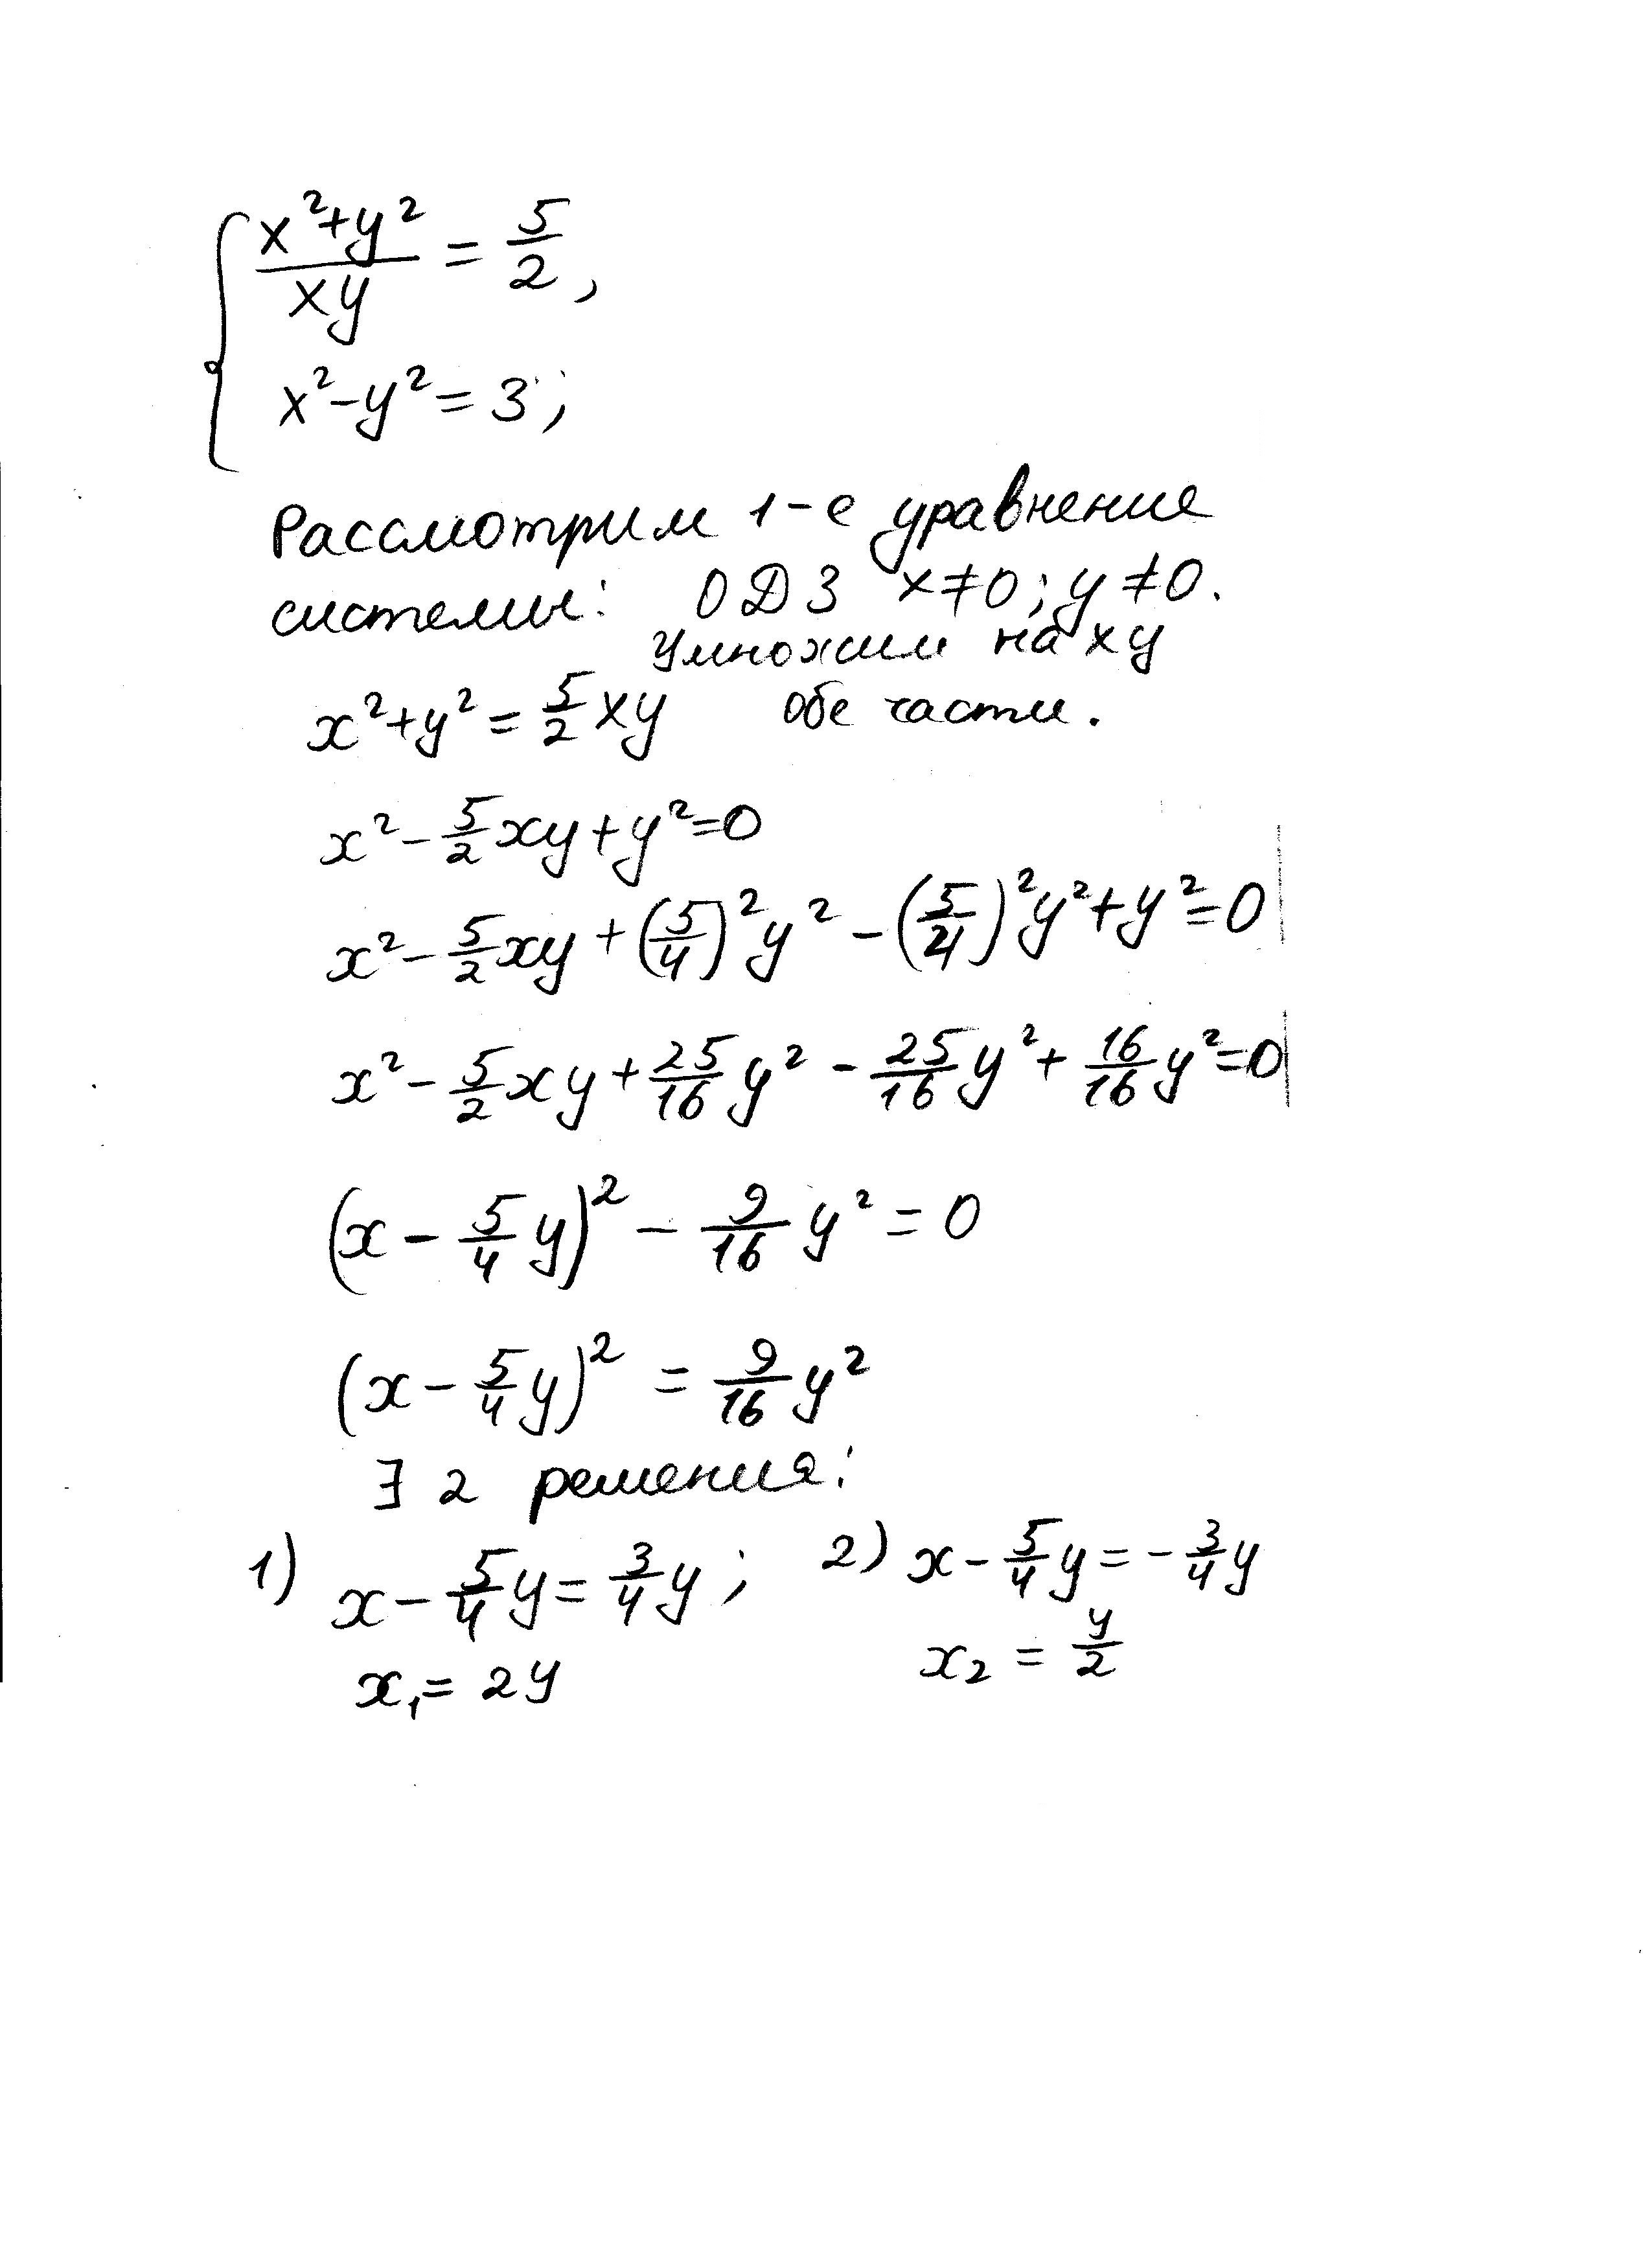 { (x²+y²)/(xy) = 5/2,
x²-y²=3;
Рассмотрим 1-е уравнение
системы: ОДЗ x≠0; y≠0.
Умножим на xy
x²+y²=5/2 xy обе части.
x²-5/2 xy+y²=0
x²-5/2 xy+(5/4)²y²-(5/4)²y²+y²=0
x²-5/2 xy+25/16 y²-25/16 y²+16/16 y²=0
(x-5/4 y)²-9/16 y²=0
(x-5/4 y)²=9/16 y²
∃ 2 решения:
1) x-5/4 y=3/4 y; 2) x-5/4 y=-3/4 y
x₁=2y x₂=y/2